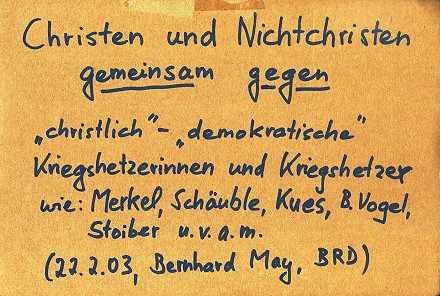 Christen und Nichtchristen
gemeinsam gegen
„christlich"-„demokratische"
Kriegshetzerinnen und Kriegshetzer
wie: Merkel, Schäuble, Kues, B. Vogel,
Stoiber u.v.a.m.
(22.2.03, Bernhard May, BRD)